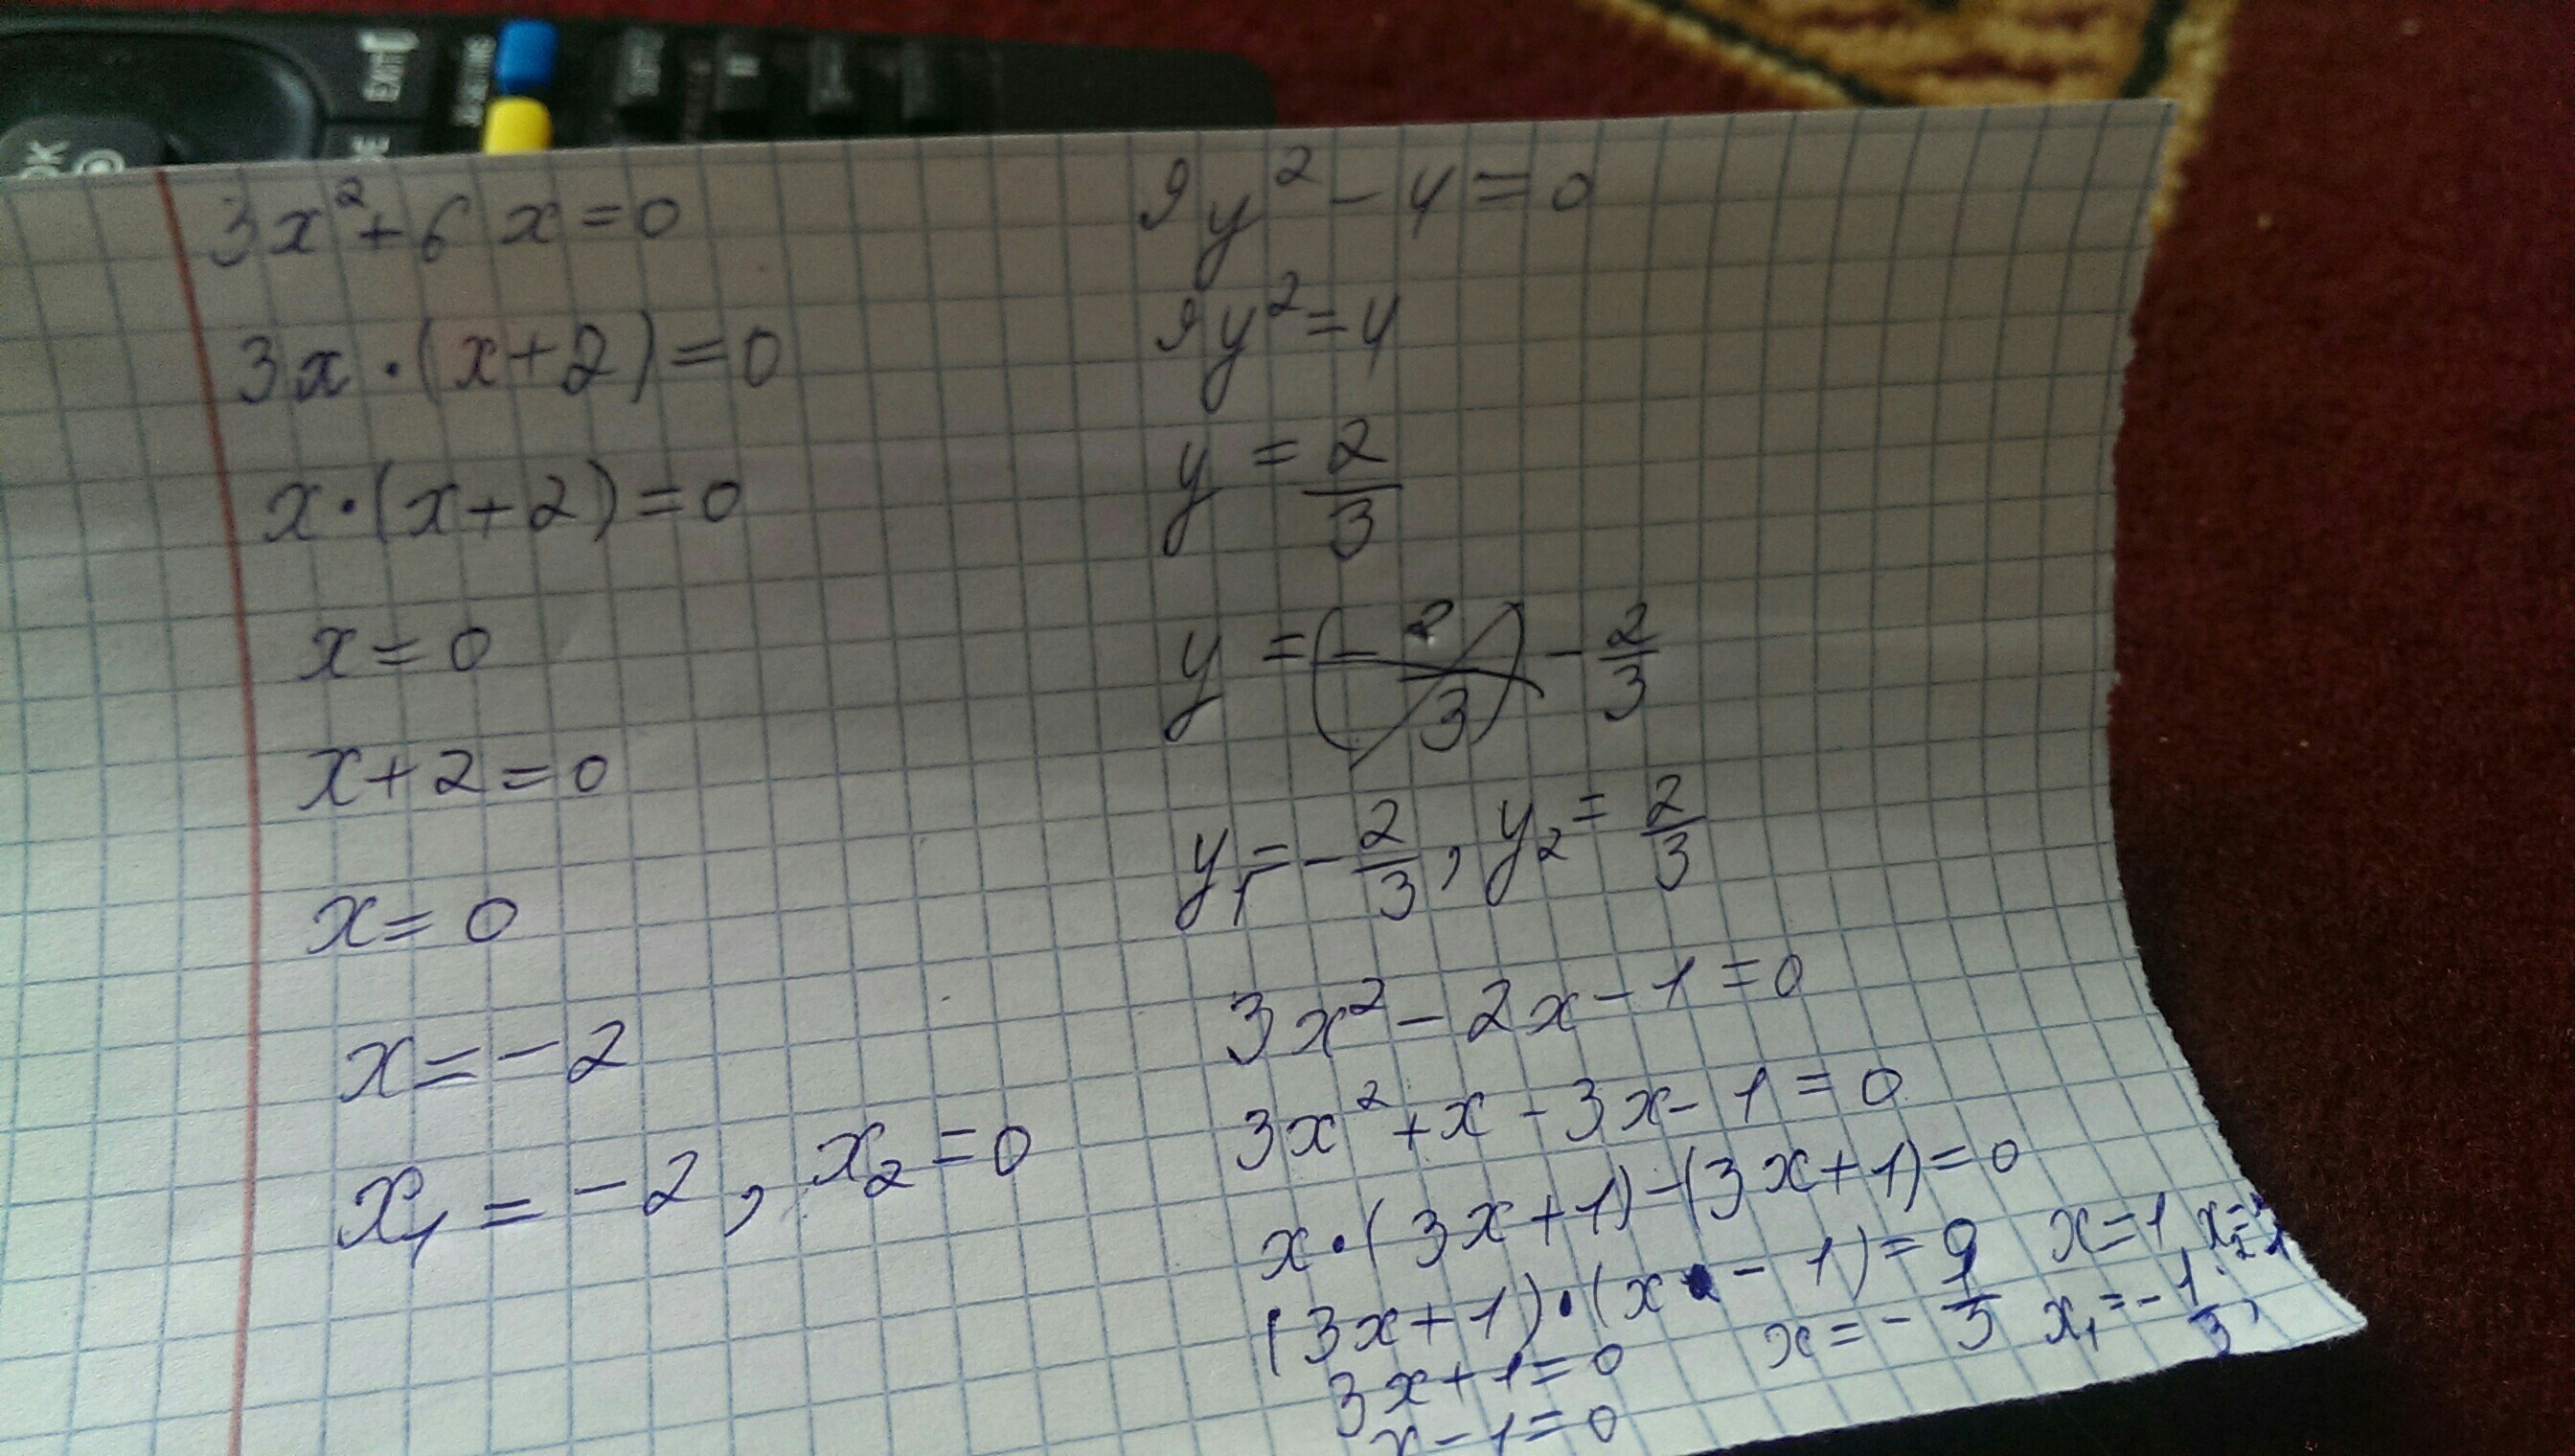 EXIT
OK
3x²+6x=0
3x·(x+2)=0
x·(x+2)=0
x=0
x+2=0
x=0
x=-2
x₁=-2, x₂=0
9y²-4=0
9y²=4
y=2/3
y=(-2/3)-2/3
y₁=-2/3, y₂=2/3
3x²-2x-1=0
3x²+x-3x-1=0
x·(3x+1)-(3x+1)=0
(3x+1)·(x-1)=0
3x+1=0
x-1=0
x=1
x=-1/3
x₁=-1/3,
x₂=1